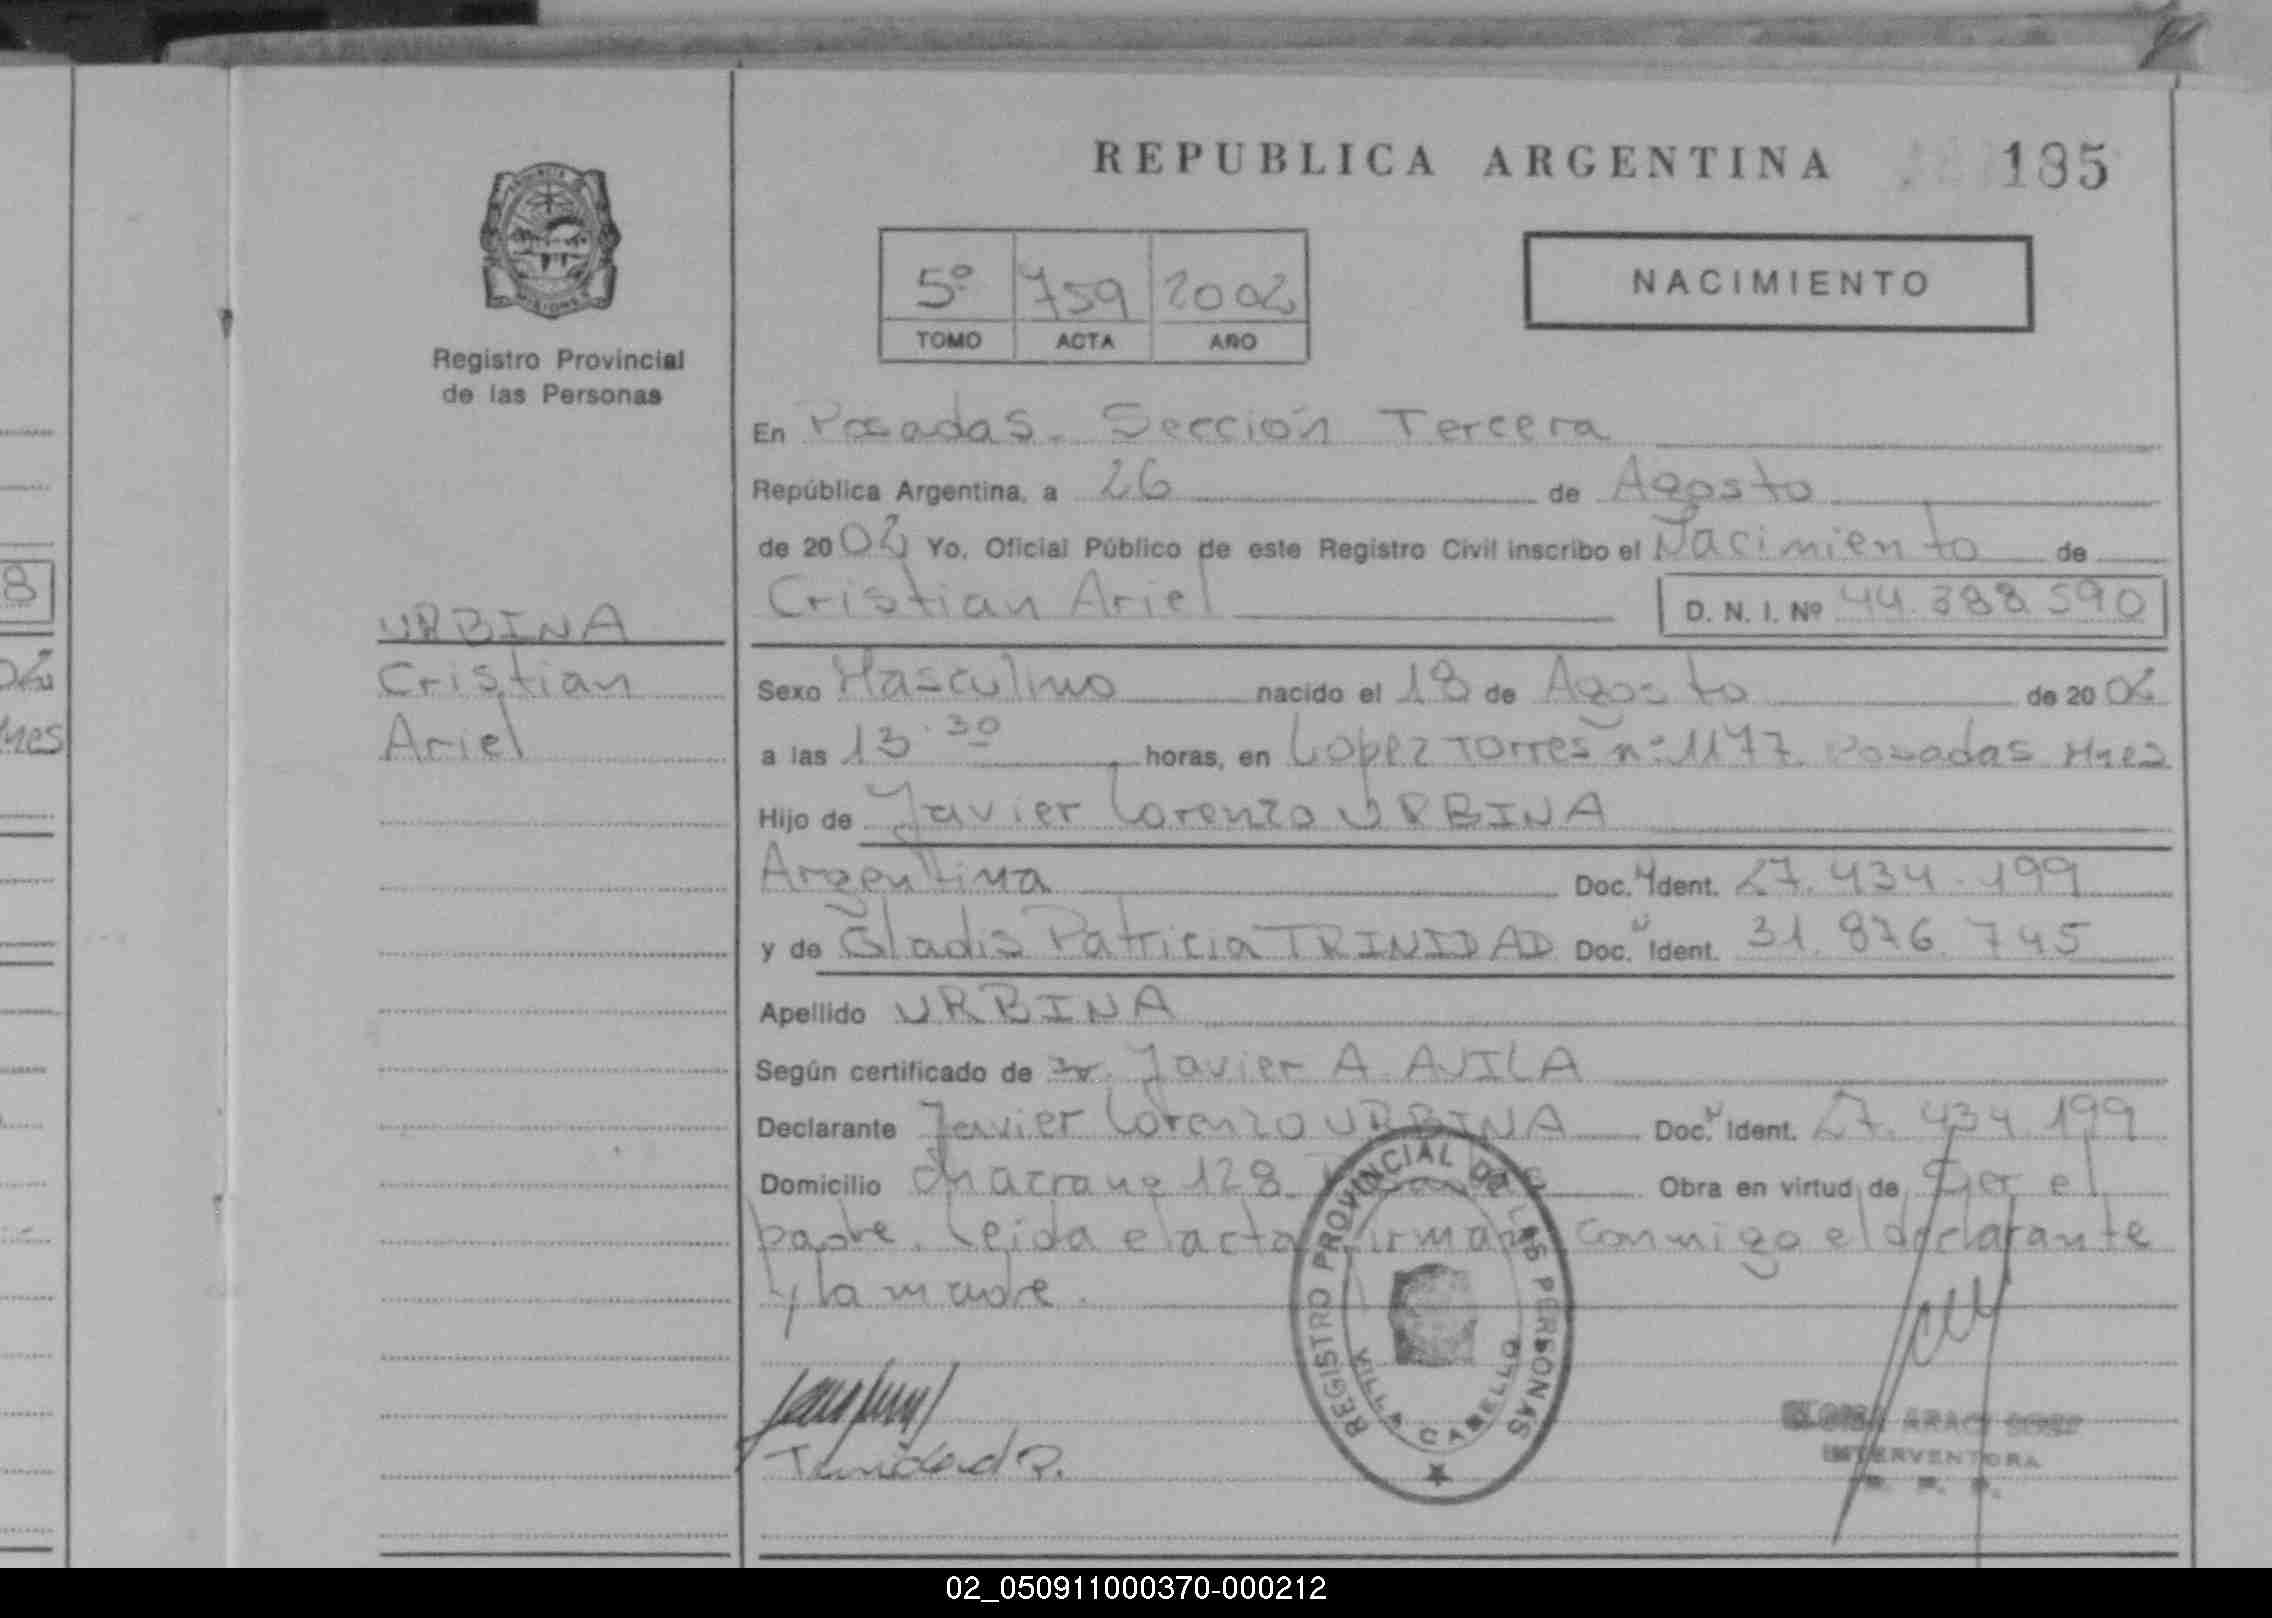 REPUBLICA ARGENTINA 185
NACIMIENTO
5º 759 2002
TOMO ACTA AÑO
PROVINCIA DE
MISIONES
Registro Provincial
de las Personas
En Posadas. Sección Tercera
República Argentina, a 26 de Agosto
de 2002 Yo, Oficial Público de este Registro Civil inscribo el Nacimiento de
Cristian Ariel D. N. I. Nº 44.388.590
8
URBINA
Cristian
Ariel
02
Mnes
Sexo Masculino nacido el 18 de Agosto de 2002
a las 13.30 horas, en Lopez Torres nº 1177. Posadas Mnes
Hijo de Javier Lorenzo URBINA
Argentina Doc. Ident. 27.434.199
y de Gladis Patricia TRINIDAD Doc. Ident. 31.876.745
Apellido URBINA
Según certificado de Javier A. AVILA
Declarante Javier Lorenzo URBINA Doc. Ident. 27.434.199
Domicilio chacra nº 128 Obra en virtud de Ser el
padre. Leida el acta firman conmigo el declarante
y la madre.
Trinidad P.
REGISTRO PROVINCIAL DE LAS PERSONAS
VILLA CABELLO
ARACI
INTERVENTORA
02_050911000370-000212